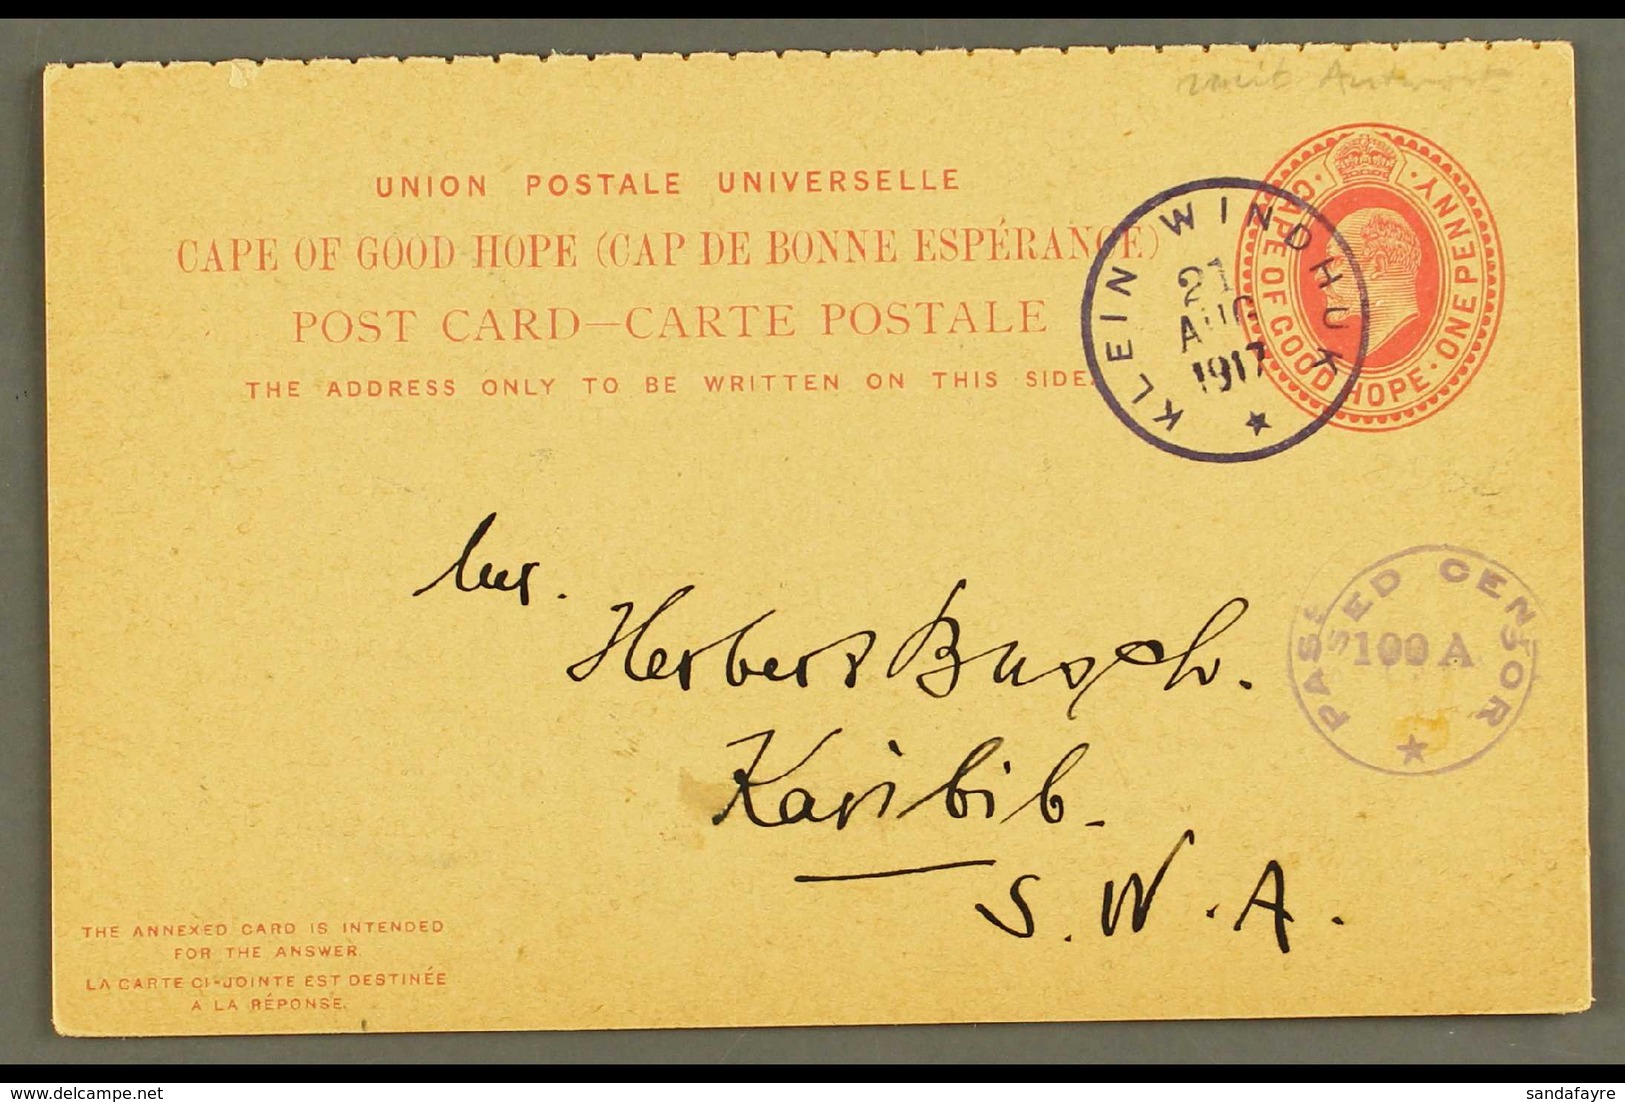 mit Antwort
UNION POSTALE UNIVERSELLE
CAPE OF GOOD HOPE (CAP DE BONNE ESPÉRANCE)
POST CARD—CARTE POSTALE
THE ADDRESS ONLY TO BE WRITTEN ON THIS SIDE.
CAPE OF GOOD HOPE · ONE PENNY ·
KLEIN WINDHUK
21
AUG
1917
PASSED CENSOR
100 A
Mr.
Herbert Busch.
Karibib.
S. W. A.
THE ANNEXED CARD IS INTENDED
FOR THE ANSWER.
LA CARTE CI-JOINTE EST DESTINÉE
A LA RÉPONSE.
sandafayre